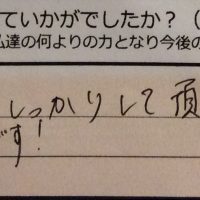 ていかがでしたか？（
私達の何よりの力となり今後の
しっかりして頂
です！